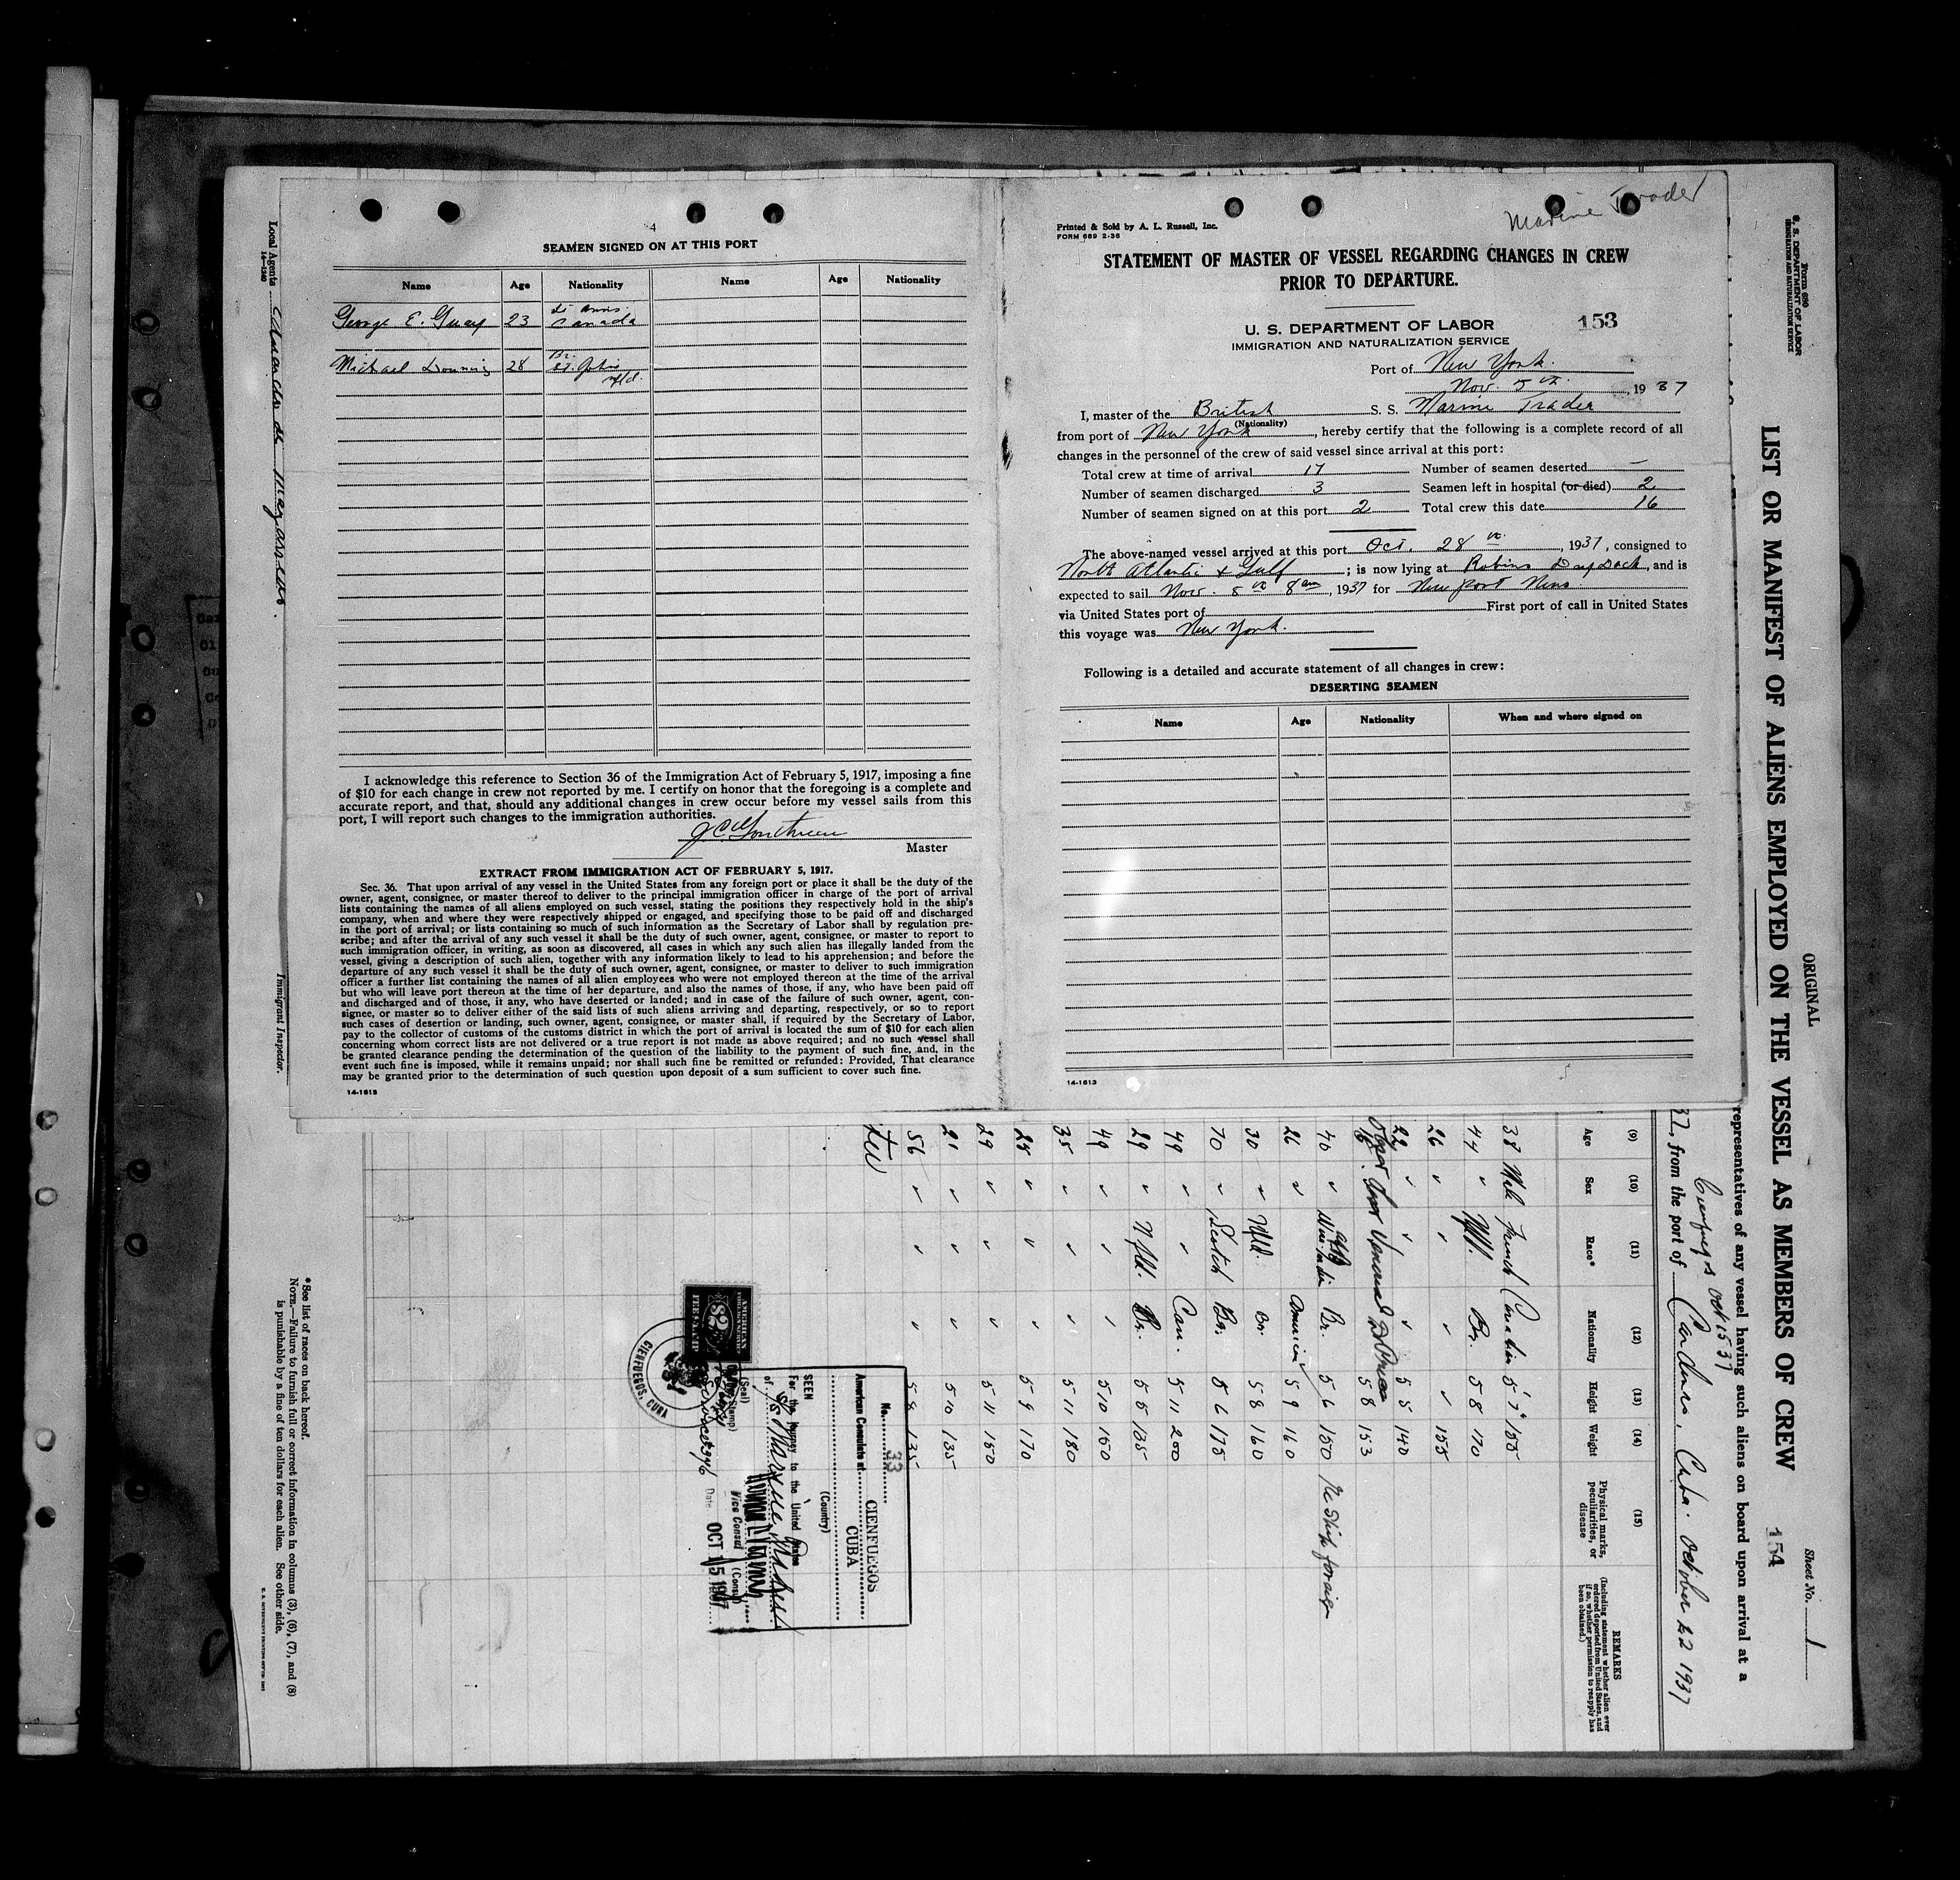 SEAMEN SIGNED ON AT THIS PORT
Name Age Nationality Name Age Nationality
George E. Guay 23 Canada
Michael 28 Br. St. Johns Nfld.
I acknowledge this reference to Section 36 of the Immigration Act of February 5, 1917, imposing a fine
of $10 for each change in crew not reported by me. I certify on honor that the foregoing is a complete and
accurate report, and that, should any additional changes in crew occur before my vessel sails from this
port, I will report such changes to the immigration authorities.
Master
EXTRACT FROM IMMIGRATION ACT OF FEBRUARY 5, 1917.
Sec. 36. That upon arrival of any vessel in the United States from any foreign port or place it shall be the duty of the
owner, agent, consignee, or master thereof to deliver to the principal immigration officer in charge of the port of arrival
lists containing the names of all aliens employed on such vessel, stating the positions they respectively hold in the ship's
company, when and where they were respectively shipped or engaged, and specifying those to be paid off and discharged
in the port of arrival; or lists containing so much of such information as the Secretary of Labor shall by regulation pre-
scribe; and after the arrival of any such vessel it shall be the duty of such owner, agent, consignee, or master to report to
such immigration officer, in writing, as soon as discovered, all cases in which any such alien has illegally landed from the
vessel, giving a description of such alien, together with any information likely to lead to his apprehension; and before the
departure of any such vessel it shall be the duty of such owner, agent, consignee, or master to deliver to such immigration
officer a further list containing the names of all alien employees who were not employed thereon at the time of the arrival
but who will leave port thereon at the time of her departure, and also the names of those, if any, who have been paid off
and discharged and of those, it any, who have deserted or landed; and in case of the failure of such owner, agent, con-
signee, or master so to deliver either of the said lists of such aliens arriving and departing, respectively, or so to report
such cases of desertion or landing, such owner, agent, consignee, or master shall, if required by the Secretary of Labor,
pay to the collector of customs of the customs district in which the port of arrival is located the sum of $10 for each alien
concerning whom correct lists are not delivered or a true report is not made as above required; and no such vessel shall
be granted clearance pending the determination of the question of the liability to the payment of such fine, and, in the
event such fine is imposed, while it remains unpaid; nor shall such fine be remitted or refunded: Provided, That clearance
may be granted prior to the determination of such question upon deposit of a sum sufficient to cover such fine.
14-1613
Marine Trader
Printed & Sold by A. L. Russell, Inc.
FORM 689 2-36
STATEMENT OF MASTER OF VESSEL REGARDING CHANGES IN CREW
PRIOR TO DEPARTURE.
U. S. DEPARTMENT OF LABOR 153
IMMIGRATION AND NATURALIZATION SERVICE
Port of New York
Nov. 5th, 1937
I, master of the British S. S. Marine Trader
(Nationality)
from port of New York, hereby certify that the following is a complete record of all
changes in the personnel of the crew of said vessel since arrival at this port:
Total crew at time of arrival 17 Number of seamen deserted —
Number of seamen discharged 3 Seamen left in hospital (or died) 2
Number of seamen signed on at this port 2 Total crew this date 16
The above-named vessel arrived at this port Oct. 28th, 1937, consigned to
North Atlantic & Gulf; is now lying at Robins Dry Dock, and is
expected to sail Nov. 8am, 1937 for New port News
via United States port of First port of call in United States
this voyage was New York.
Following is a detailed and accurate statement of all changes in crew:
DESERTING SEAMEN
Name Age Nationality When and where signed on
14-1613
Form 680
U. S. DEPARTMENT OF LABOR
IMMIGRATION AND NATURALIZATION SERVICE
ORIGINAL
Sheet No. 1
LIST OR MANIFEST OF ALIENS EMPLOYED ON THE VESSEL AS MEMBERS OF CREW 154
representatives of any vessel having such aliens on board upon arrival at a
Cienfuegos Oct 15 37
37, from the port of Cardenas, Cuba. October 22 1937
(9) (10) (11) (12) (13) (14) (15) REMARKS
Age Sex Race* Nationality Height Weight Physical marks, peculiarities, or disease
(Including statement whether alien ever ordered deported from United States, and if so, whether permission to reapply has been obtained.)
38 Male French Canadian 5'7" 155
44 Nfld. Br. 5 8 170
26 155
22 5 5 140
5 8 153
40 Br. 5 6 150
26 American 5 9 160
30 Nfld. Br. 5 8 160
70 Scotch Br. 5 6 175
49 Can. 5 11 200
29 Nfld. Br. 5 5 135
49 5 10 150
35 5 11 180
25 5 9 170
29 5 11 150
21 5 10 135
56 5 8 135
No. 33
CIENFUEGOS
American Consulate at CUBA
(Country)
SEEN
For the journey to the United States
of
Vice Consul (Consul)
(Seal)
Date OCT 15 1937
AMERICAN
FOREIGN SERVICE
$2
FEE STAMP
CIENFUEGOS, CUBA
*See list of races on back hereof.
NOTE.—Failure to furnish full or correct information in columns (3), (6), (7), and (8)
is punishable by a fine of ten dollars for each alien. See other side.
Local Agents
14-1240
Immigrant Inspector.